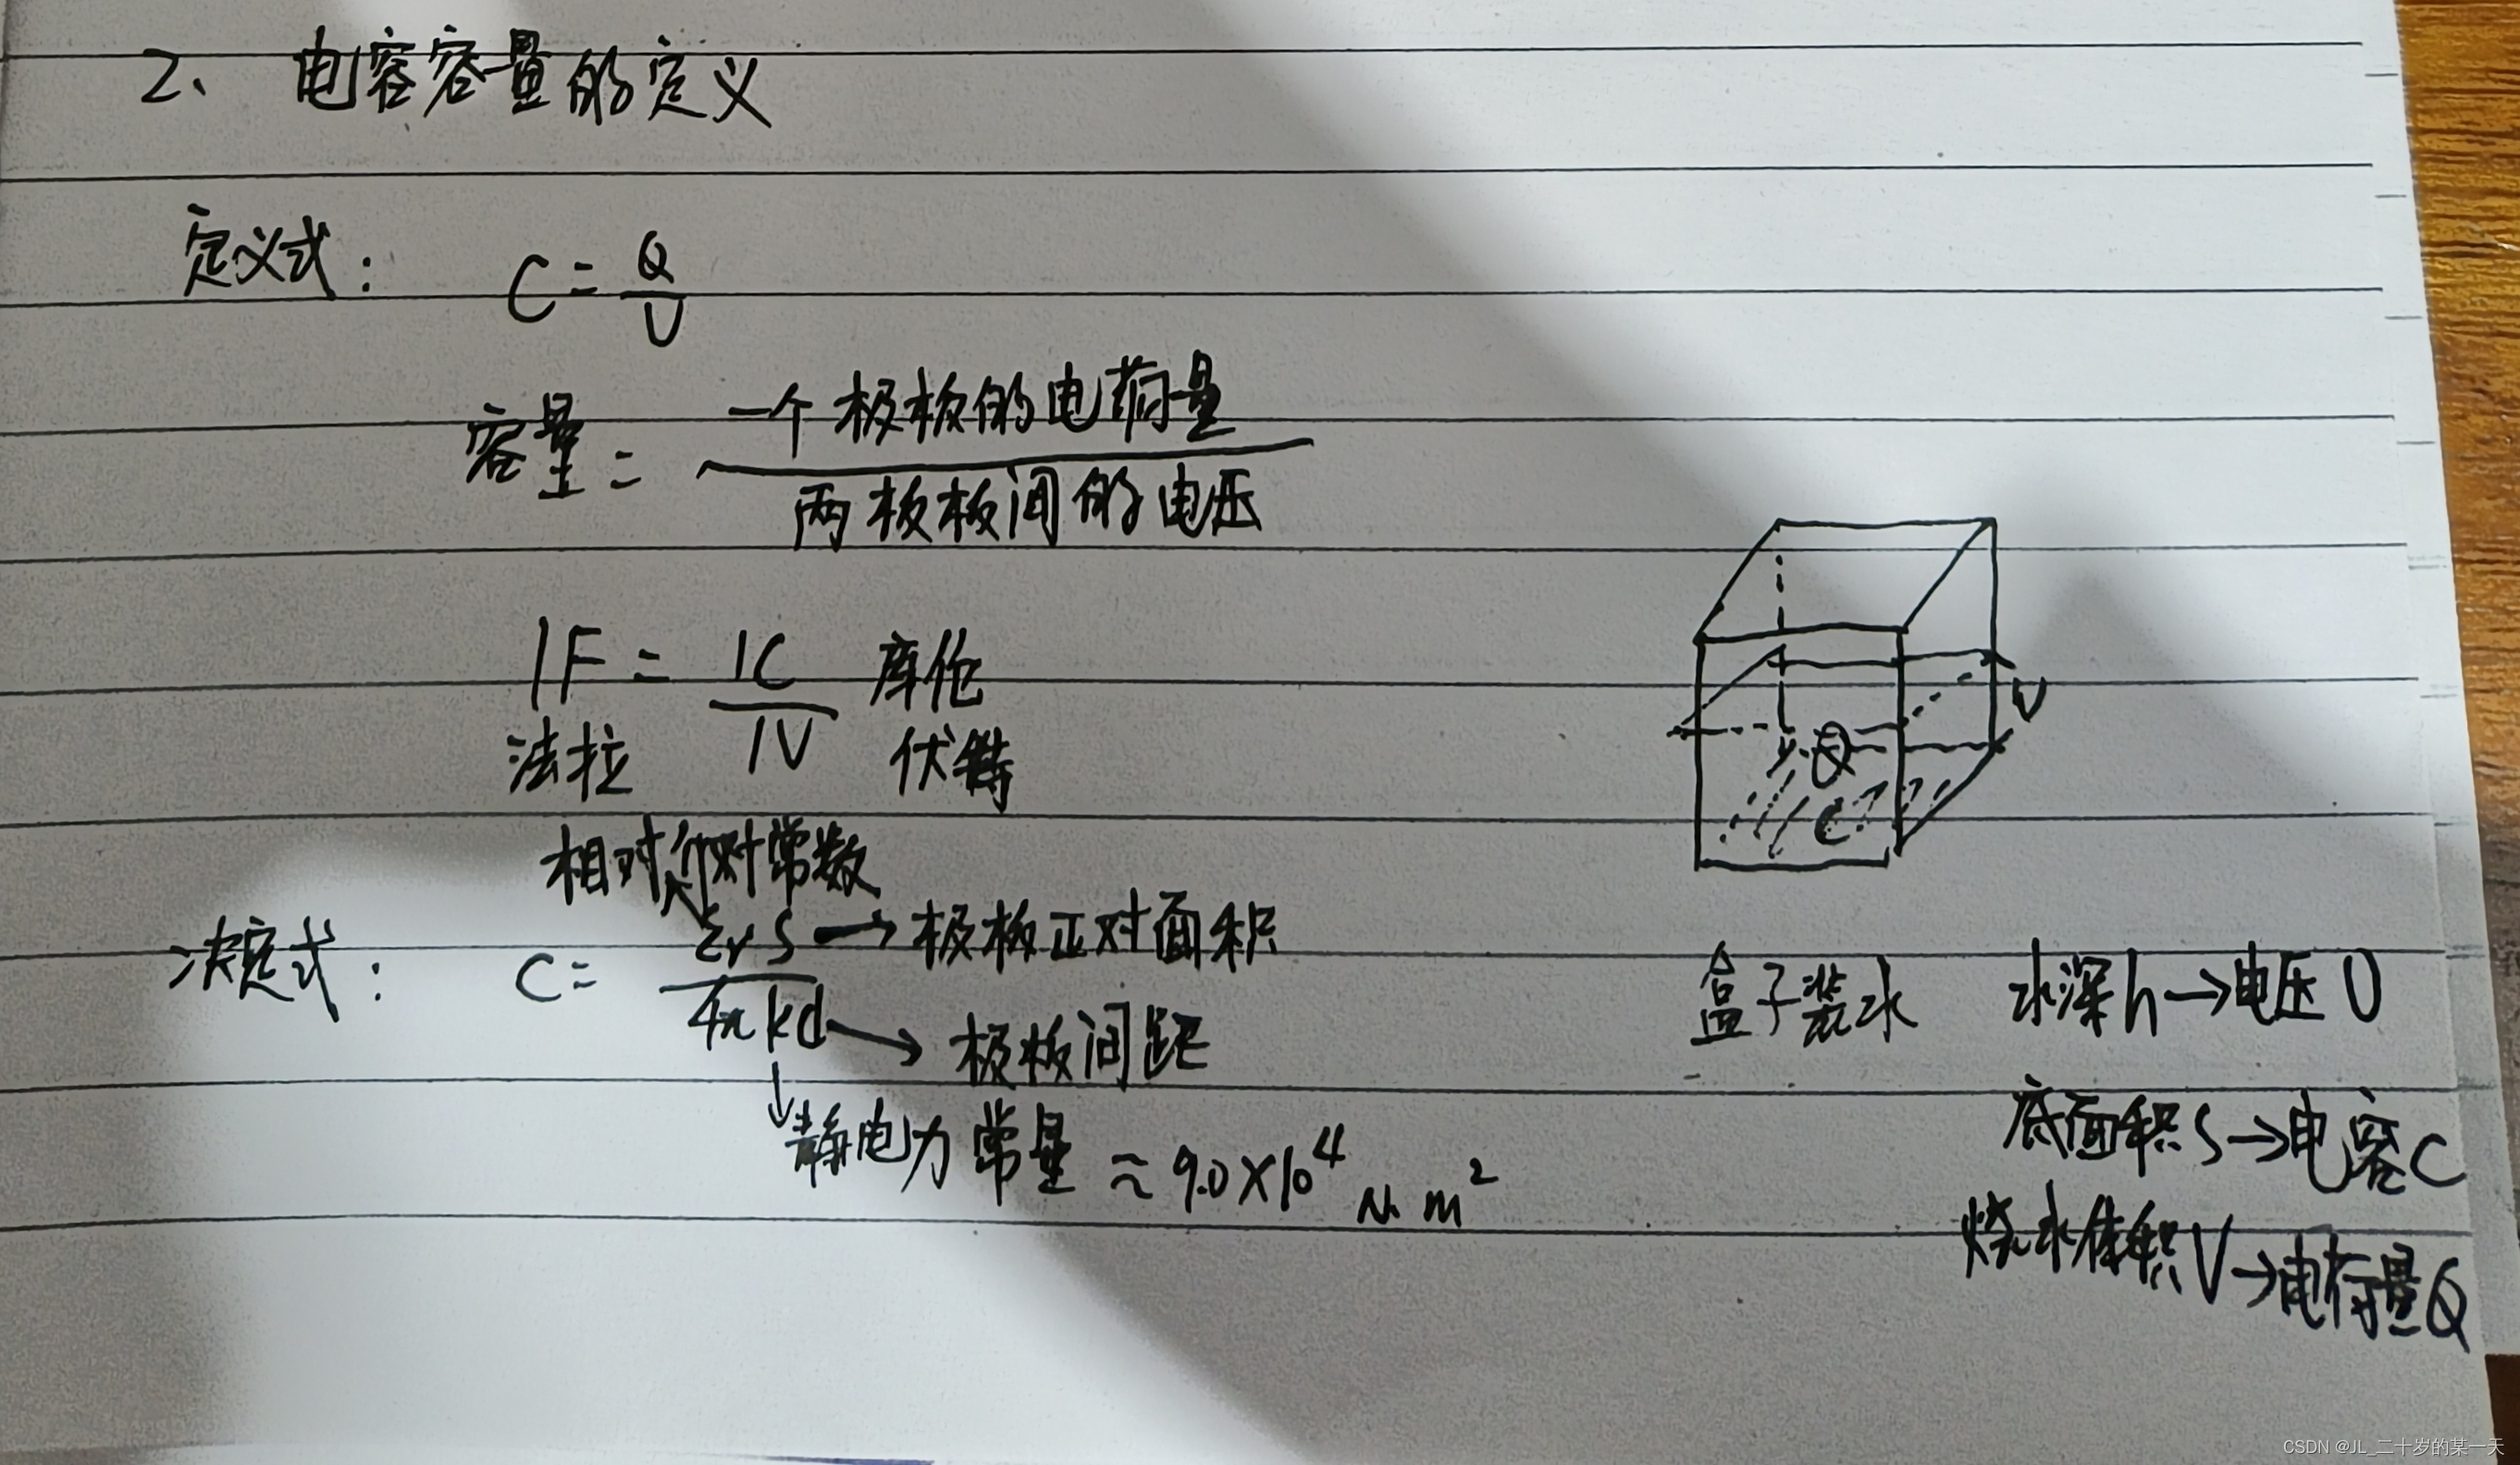 2、 电容容量的定义
定义式： C = Q/U
容量 = 一个极板的电荷量/两极板间的电压
1F = 1C/1V 库伦
法拉 伏特
相对介对常数
决定式： C = εrS/4πkd → 极板正对面积
→ 极板间距
↓ 静电力常量 ≈ 9.0×10⁴ N·m²
U
Q
C
盒子装水 水深h→电压U
底面积S→电容C
烧水体积V→电荷量Q
CSDN @JL_二十岁的某一天